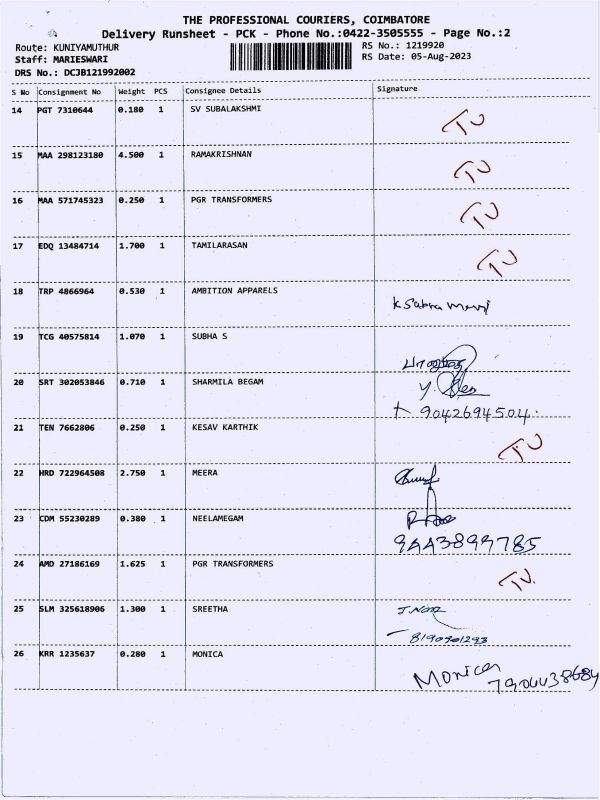 THE PROFESSIONAL COURIERS, COIMBATORE
Delivery Runsheet - PCK - Phone No.:0422-3505555 - Page No.:2
Route: KUNIYAMUTHUR RS No.: 1219920
Staff: MARIESWARI RS Date: 05-Aug-2023
DRS No.: DCJB121992002
S No Consignment No Weight PCS Consignee Details Signature
14 PGT 7310644 0.180 1 SV SUBALAKSHMI TU
15 MAA 298123180 4.500 1 RAMAKRISHNAN TU
16 MAA 571745323 0.250 1 PGR TRANSFORMERS TU
17 EDQ 13484714 1.700 1 TAMILARASAN TU
18 TRP 4866964 0.530 1 AMBITION APPARELS
19 TCG 40575814 1.070 1 SUBHA S
20 SRT 302053846 0.710 1 SHARMILA BEGAM
9042694504
21 TEN 7662806 0.250 1 KESAV KARTHIK TU
22 HRD 722964508 2.750 1 MEERA
23 CDM 55230289 0.380 1 NEELAMEGAM
9443899785
24 AMD 27186169 1.625 1 PGR TRANSFORMERS TU.
25 SLM 325618906 1.300 1 SREETHA
26 KRR 1235637 0.280 1 MONICA
Monica
7904438684